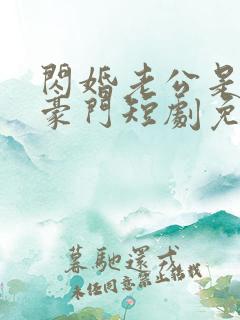 閃婚老公是
豪門短劇免
暮馳還式
未任同意禁止轉載